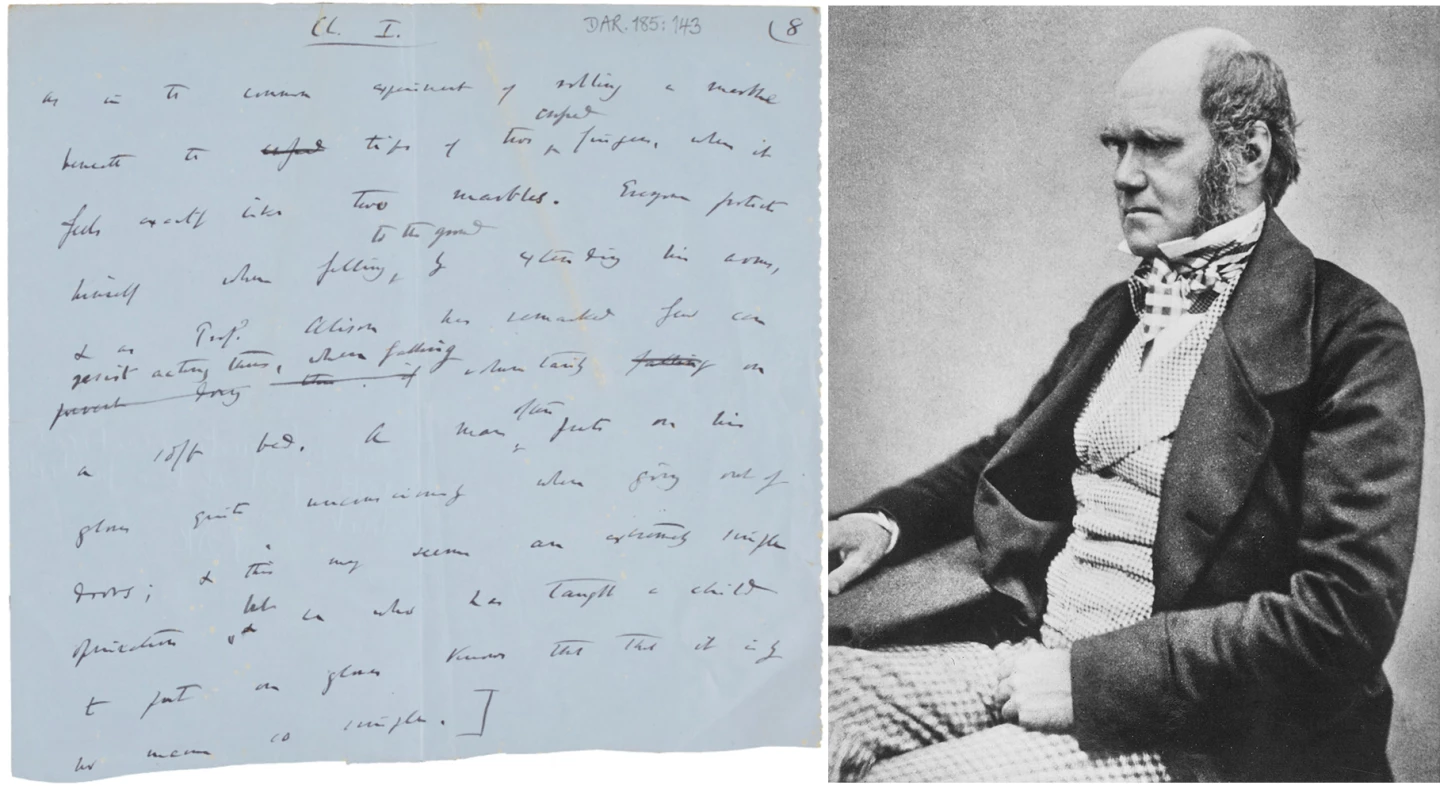 Ch. I. DAR.185:143 (8
as in the common experiment of rolling a marble
crossed
beneath the crossed tips of two fingers, when it
feels exactly like two marbles. Everyone protects
to the ground
himself when falling, by extending his arms,
& as Prof. Alison has remarked few can
resist acting thus, when falling
prevent doing thus. if voluntarily falling on
a soft bed. A man often puts on his
gloves quite unconsciously when going out of
doors; & this may seem an extremely simple
operation but he who has taught a child
to put on gloves knows that that it is by
no means so simple. ]